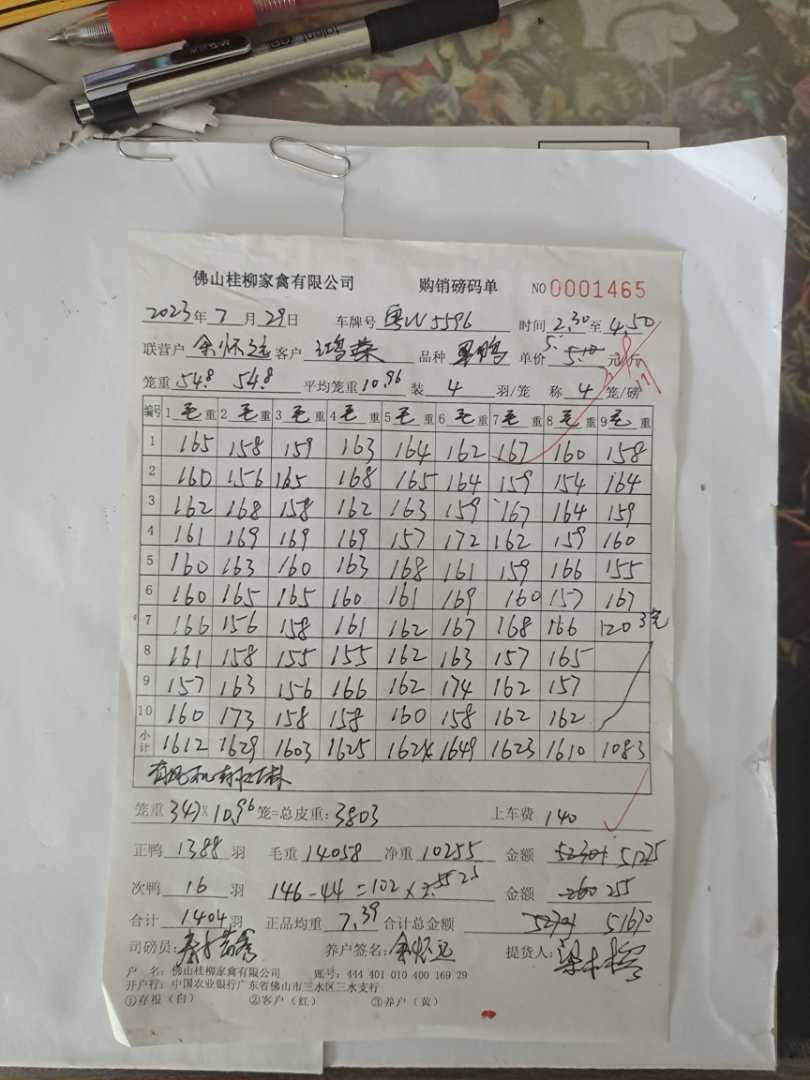 佛山桂柳家禽有限公司 购销磅码单 NO 0001465
2023年7月29日 车牌号 粤W5596 时间 2.30至4.50
联营户 余怀远 客户 鸿荣 品种 单价 元/斤
笼重 54.8 54.8 平均笼重 10.96 装 4 羽/笼 称 4 笼/磅
编号 1毛重 2毛重 3毛重 4毛重 5毛重 6毛重 7毛重 8毛重 9毛重
1 165 158 159 163 164 162 167 160 158
2 160 156 165 168 165 164 159 154 164
3 162 168 158 162 163 159 167 164 159
4 161 169 169 169 157 172 162 159 160
5 160 163 160 163 168 161 159 166 155
6 160 165 165 160 161 169 160 157 167
7 166 156 158 161 162 167 168 166 120 3笼
8 161 158 155 155 162 163 157 165
9 157 163 156 166 162 174 162 157
10 160 173 158 158 160 158 162 162
小计 1612 1629 1603 1625 1624 1649 1623 1610 1083
笼重 347×10.96 笼=总皮重: 3803 上车费 140
正鸭 1388 羽 毛重 14058 净重 10255 金额 51275
次鸭 16 羽 146-44=102× 金额 255
合计 1404 羽 正品均重 7.39 合计总金额 51670
司磅员: 养户签名: 余怀远 提货人:
户 名: 佛山桂柳家禽有限公司 账号: 444 401 010 400 169 29
开户行: 中国农业银行广东省佛山市三水区三水支行
①存根(白) ②客户(红) ③养户(黄)